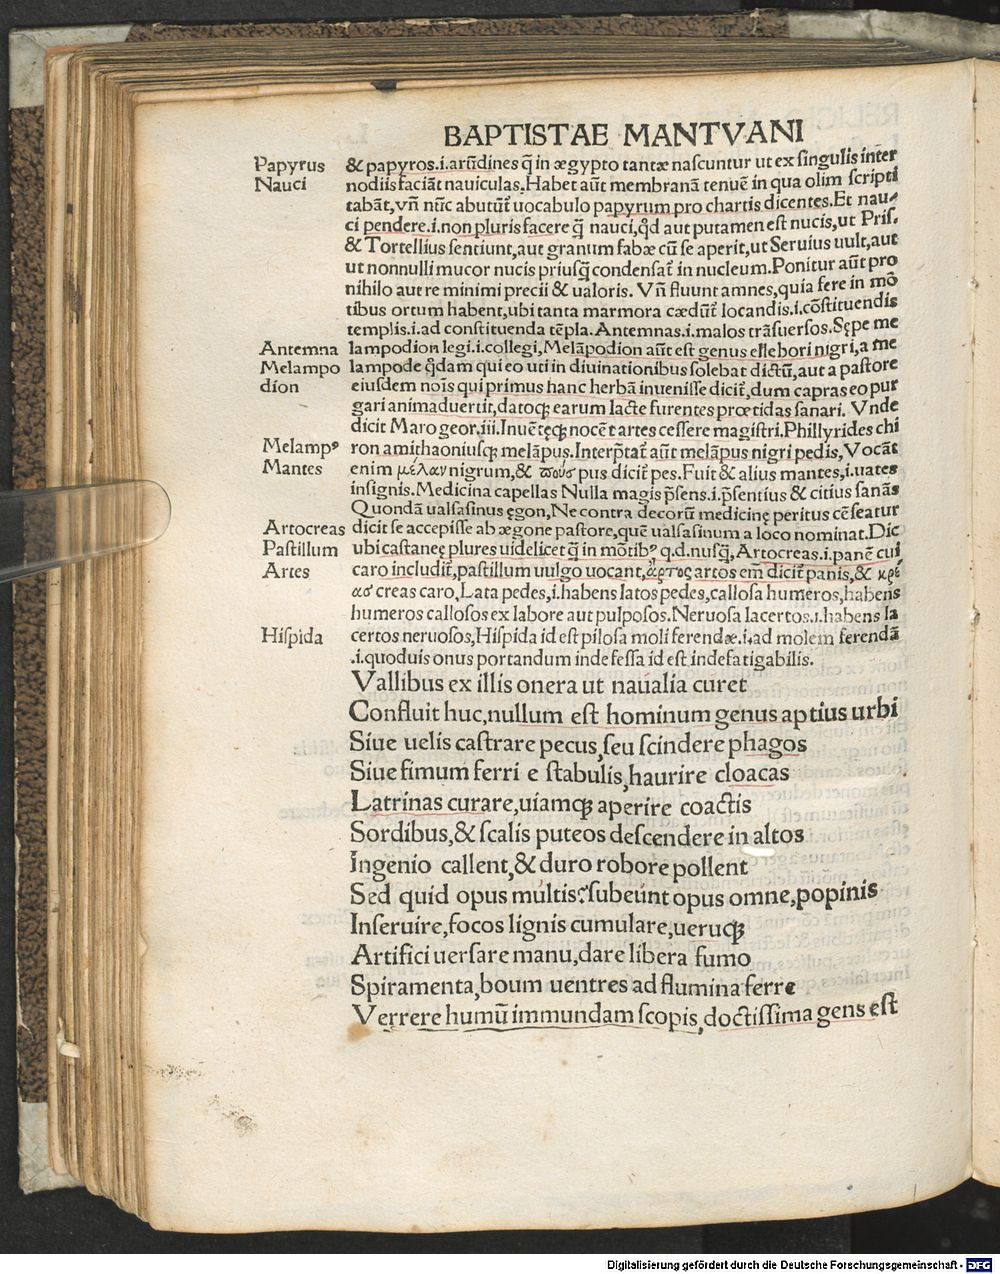 BAPTISTAE MANTVANI
Papyrus &papyros.i.arūdines q̄ in ægypto tantæ naſcuntur ut ex ſingulis inter
Nauci nodiis faciāt nauiculas.Habet aūt membranā tenuē in qua olim ſcripti
tabāt,vñ nūc abutūt̄ uocabulo papyrum pro chartis dicentes.Et nau⸗
ci pendere.i.non pluris facere q̄ nauci,q̊d aut putamen eſt nucis,ut Priſ.
& Tortellius ſentiunt,aut granum fabæ cū ſe aperit,ut Seruius uult,aut
ut nonnulli mucor nucis priuſq̄ condenſat̄ in nucleum.Ponitur aūt pro
nihilo aut re minimi precii & ualoris. Vñ fluunt amnes,quia fere in mō
tibus ortum habent,ubi tanta marmora cædūt̄ locandis.i.cōſtituendis
templis.i.ad conſtituenda tēpla.Antemnas.i.malos trāſuerſos.Sępe me
Antemna lampodion legi.i.collegi,Melāpodion aūt eſt genus ellebori nigri,a me
Melampo lampode q̊dam qui eo uti in diuinationibus ſolebat dictū,aut a paſtore
dion eiuſdem nois̄ qui primus hanc herbā inueniſſe dicit̄,dum capras eo pur
gari animaduertit,datoqꝫ earum lacte furentes prœtidas ſanari. Vnde
dicit Maro geor.iii.Inuētęqꝫ nocēt artes ceſſere magiſtri.Phillyrides chi
Melampꝰ ron amithaoniuſqꝫ melāpus.Interp̄tat̄ aūt melāpus nigri pedis,Vocāt
Mantes enim μέλαν nigrum,& ϖούσ pus dicit̄ pes.Fuit & alius mantes,i.uates
inſignis.Medicina capellas Nulla magis p̄ſens.i.p̄ſentius & citius ſanās
Quondā ualſaſinus ęgon,Ne contra decorū medicinę peritus cēſeatur
Artocreas dicit ſe accepiſſe ab ægone paſtore,quē ualſaſinum a loco nominat.Dic
Paſtillum ubi caſtaneę plures uidelicet q̄ in mōtibꝰ q.d.nuſq̄,Artocreas.i.panē cui
Artes caro includit̄,paſtillum uulgo uocant,ἄρτος artos em̄ dicit̄ panis,& κρέ
ασ creas caro,Lata pedes,i.habens latos pedes,calloſa humeros,habens
humeros calloſos ex labore aut pulpoſos.Neruoſa lacertos.i.habens la
Hiſpida certos neruoſos,Hiſpida id eſt piloſa moli ferendæ.i.ad molem ferendā
.i.quoduis onus portandum indefeſſa id eſt indefatigabilis.
Vallibus ex illis onera ut naualia curet
Confluit huc,nullum eſt hominum genus aptius urbi
Siue uelis caſtrare pecus,ſeu ſcindere phagos
Siue fimum ferri e ſtabulis,haurire cloacas
Latrinas curare,uiamqꝫ aperire coactis
Sordibus,& ſcalis puteos deſcendere in altos
Ingenio callent,& duro robore pollent
Sed quid opus multis?ſubeunt opus omne,popinis
Inſeruire,focos lignis cumulare,ueruqꝫ
Artifici uerſare manu,dare libera fumo
Spiramenta,boum uentres ad flumina ferre
Verrere humū immundam ſcopis,doctiſſima gens eſt
Digitalisierung gefördert durch die Deutsche Forschungsgemeinschaft - DFG